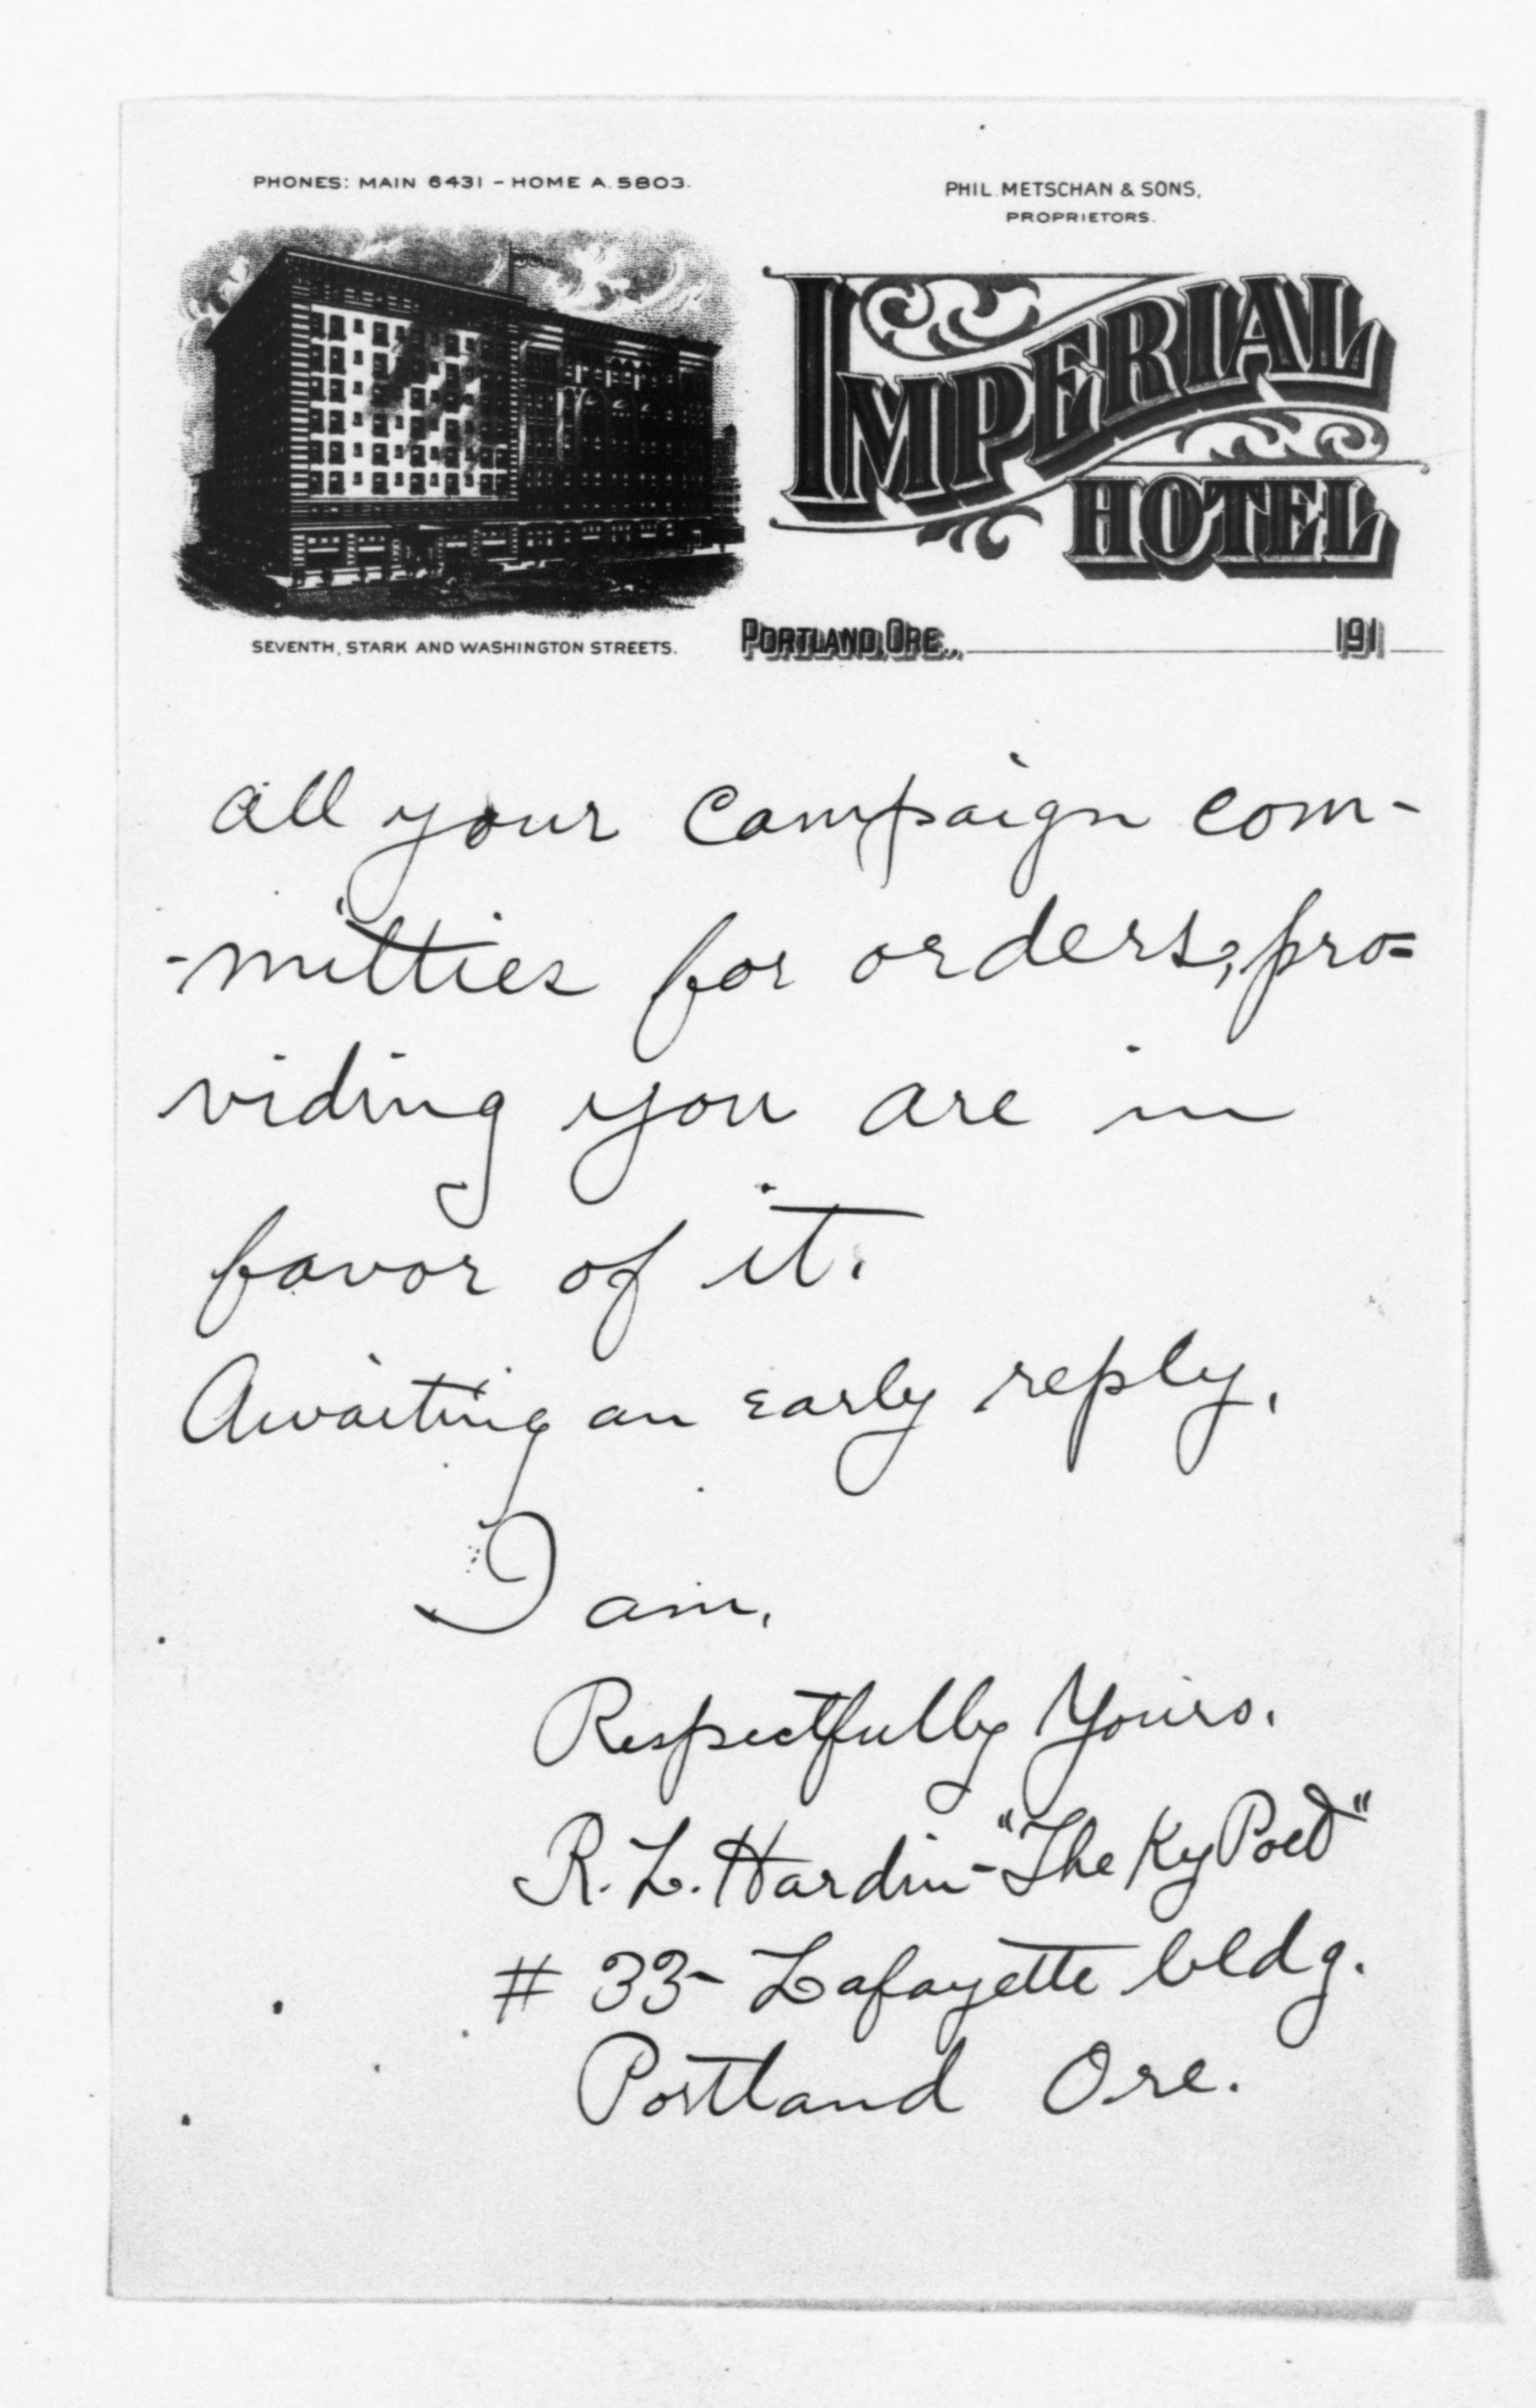 PHONES: MAIN 6431 – HOME A. 5803.
PHIL. METSCHAN & SONS,
PROPRIETORS.
IMPERIAL
HOTEL
SEVENTH, STARK AND WASHINGTON STREETS.
PORTLAND, ORE., 191
all your campaign com-
-mitties for orders, pro=
viding you are in
favor of it.
Awaiting an early reply,
I am,
Respectfully Yours.
R. L. Hardin - "The Ky Poet"
# 33 - Lafayette bldg.
Portland Ore.